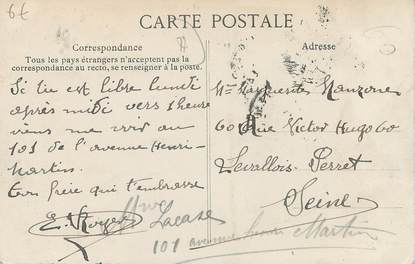 6€
CARTE POSTALE
Correspondance
Tous les pays étrangers n'acceptent pas la
correspondance au recto, se renseigner à la poste.
Si tu est libre lundi
après midi vers 1 heure
viens me voir au
101 de l'avenue Henri-
Martin
Ton frère qui t'embrasse
E. Royer
Adresse
Marguerite Manzone
60 Rue Victor Hugo 60
Levallois-Perret
Seine
Lacase
101 avenue Henri Martin